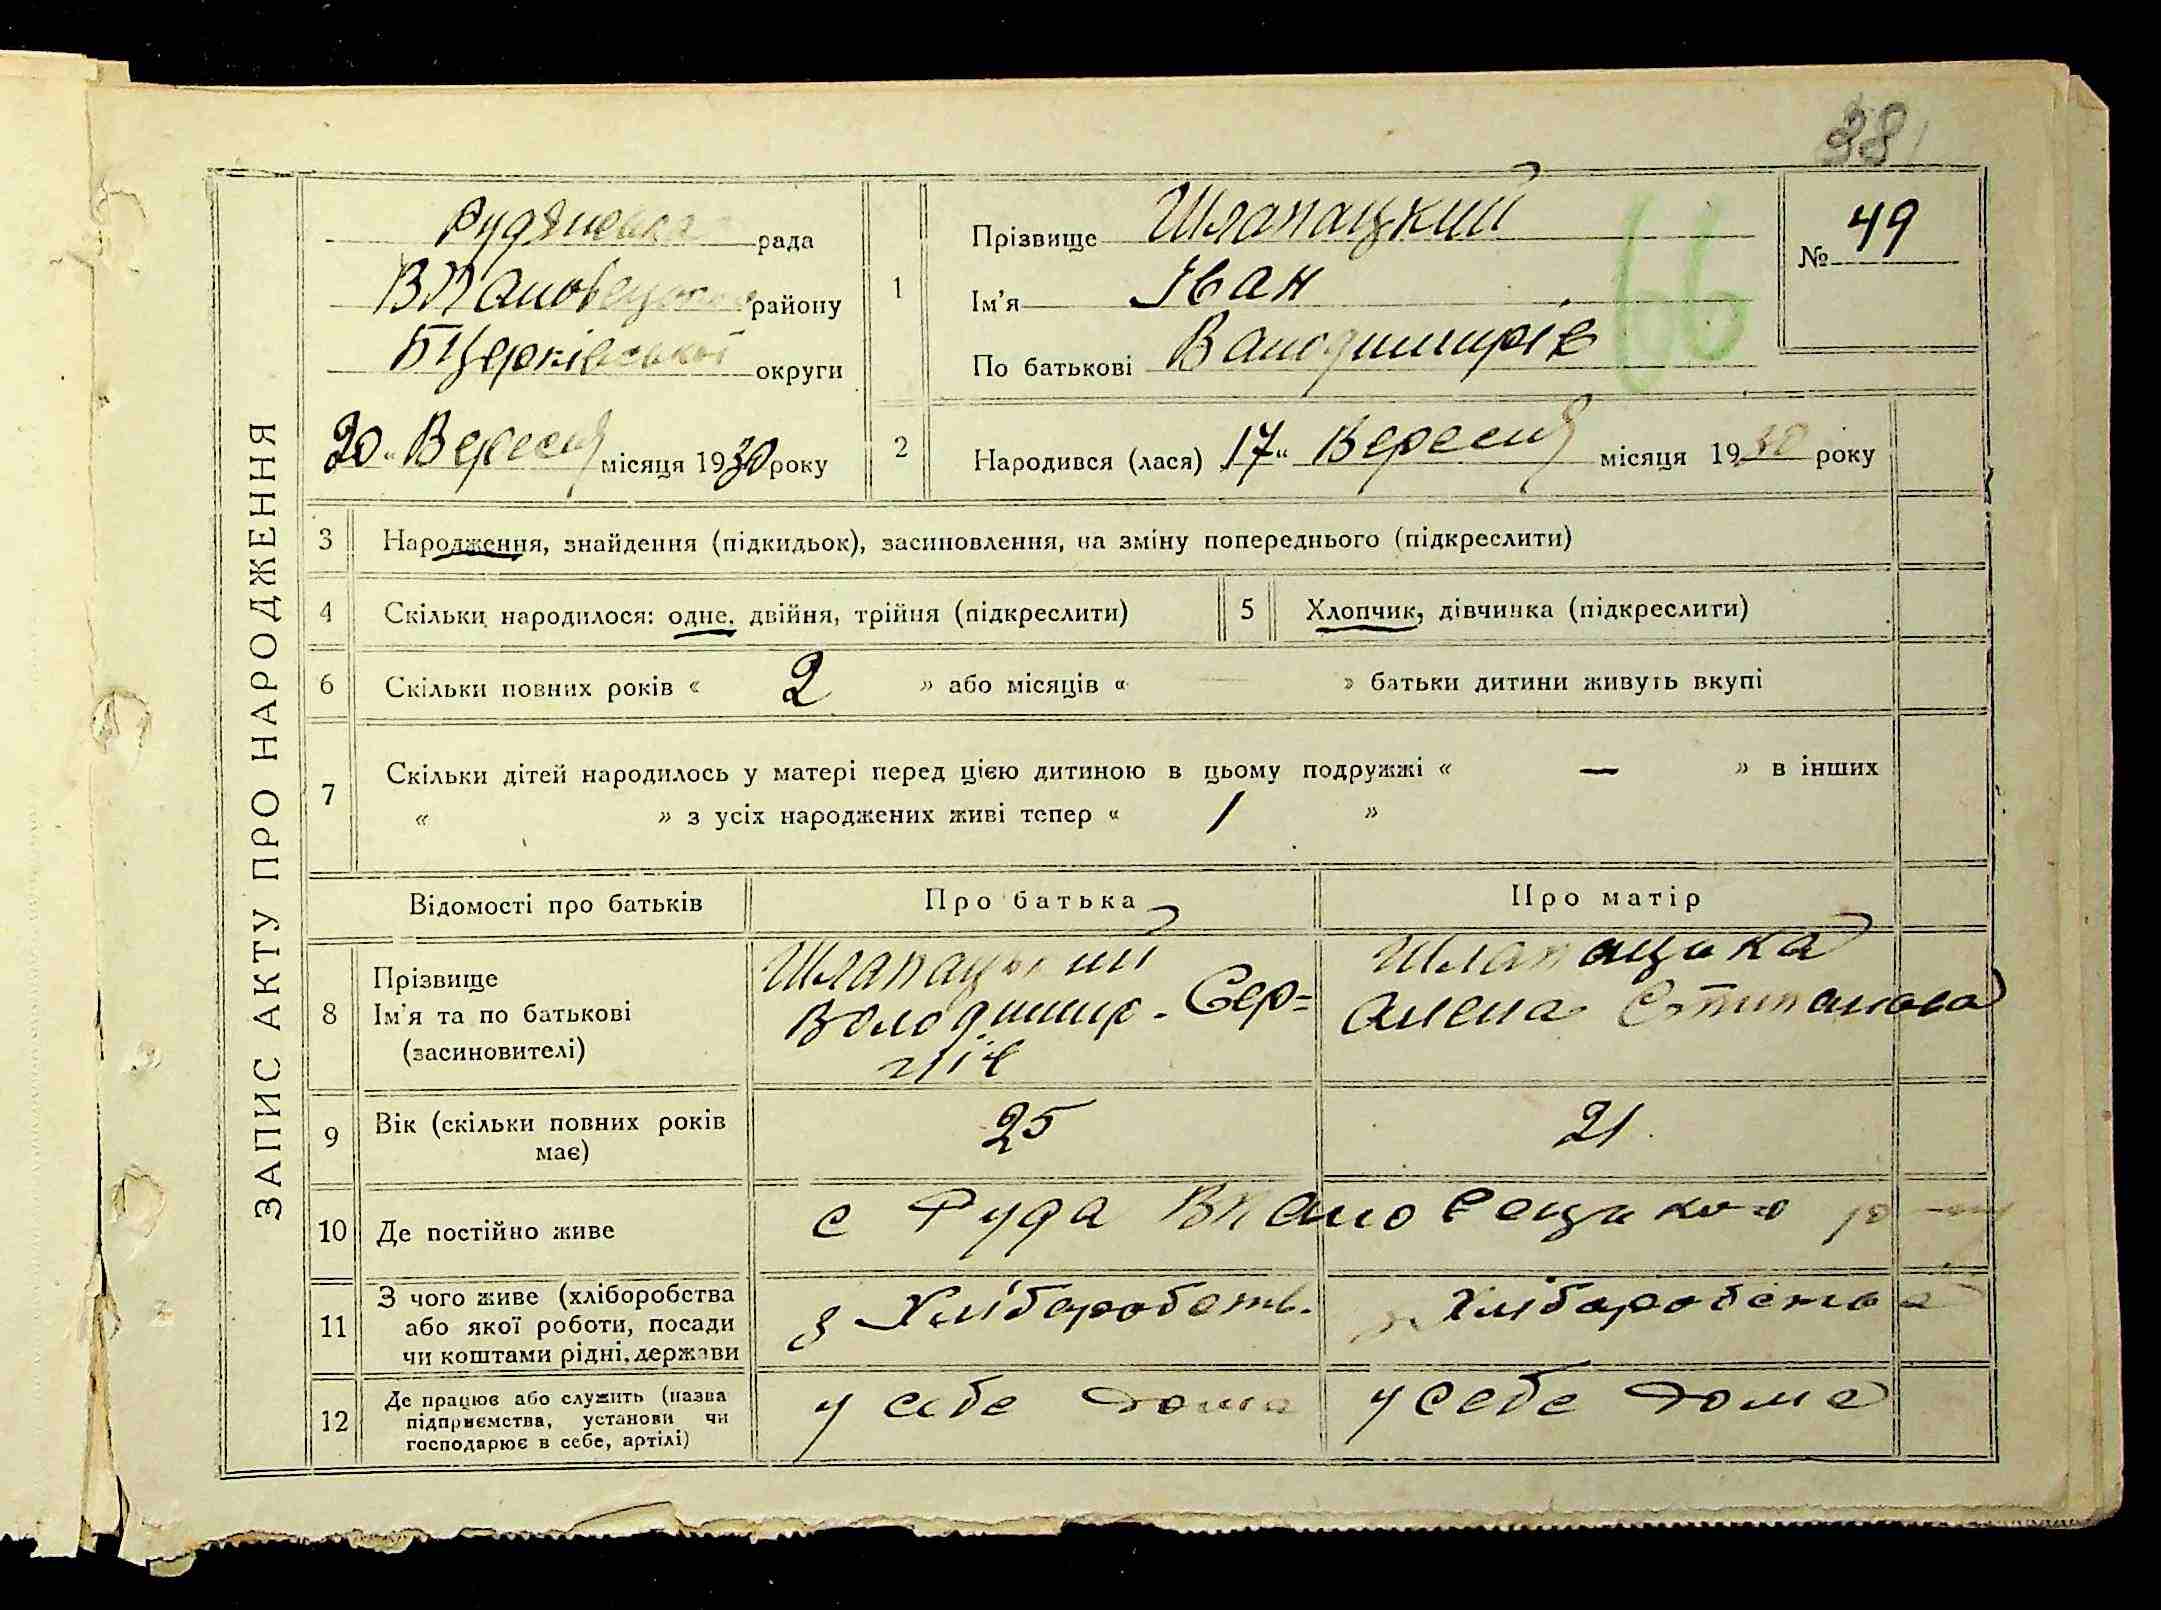 38
ЗАПИС АКТУ ПРО НАРОДЖЕННЯ
Рудянська рада
району
БЦерківської округи
20 " Вересня місяця 1930 року
1
Прізвище Шлапацкий
Ім'я Іван
По батькові
66
№ 49
2
Народився (лася) 17 " Вересня місяця 1930 року
3 Народження, знайдення (підкидьок), засиновлення, на зміну попереднього (підкреслити)
4 Скільки народилося: одне, двійня, трійня (підкреслити)
5 Хлопчик, дівчинка (підкреслити)
6 Скільки повних років « 2 » або місяців « » батьки дитини живуть вкупі
7 Скільки дітей народилось у матері перед цією дитиною в цьому подружжі « — » в інших
« » з усіх народжених живі тепер « 1 »
Відомості про батьків
Про батька
Про матір
8 Прізвище
Ім'я та по батькові
(засиновителі)
Шлапацький
Володимир Сер=
гіїв
Шлапацька
Алена Стипанова
9 Вік (скільки повних років
має)
25
21
10 Де постійно живе
с Руда
11 З чого живе (хліборобства
або якої роботи, посади
чи коштами рідні, держави
з Хліборобств.
з Хліборобства
12 Де працює або служить (назва
підприємства, установи чи
господарює в себе, артілі)
у себе дома
у себе дома